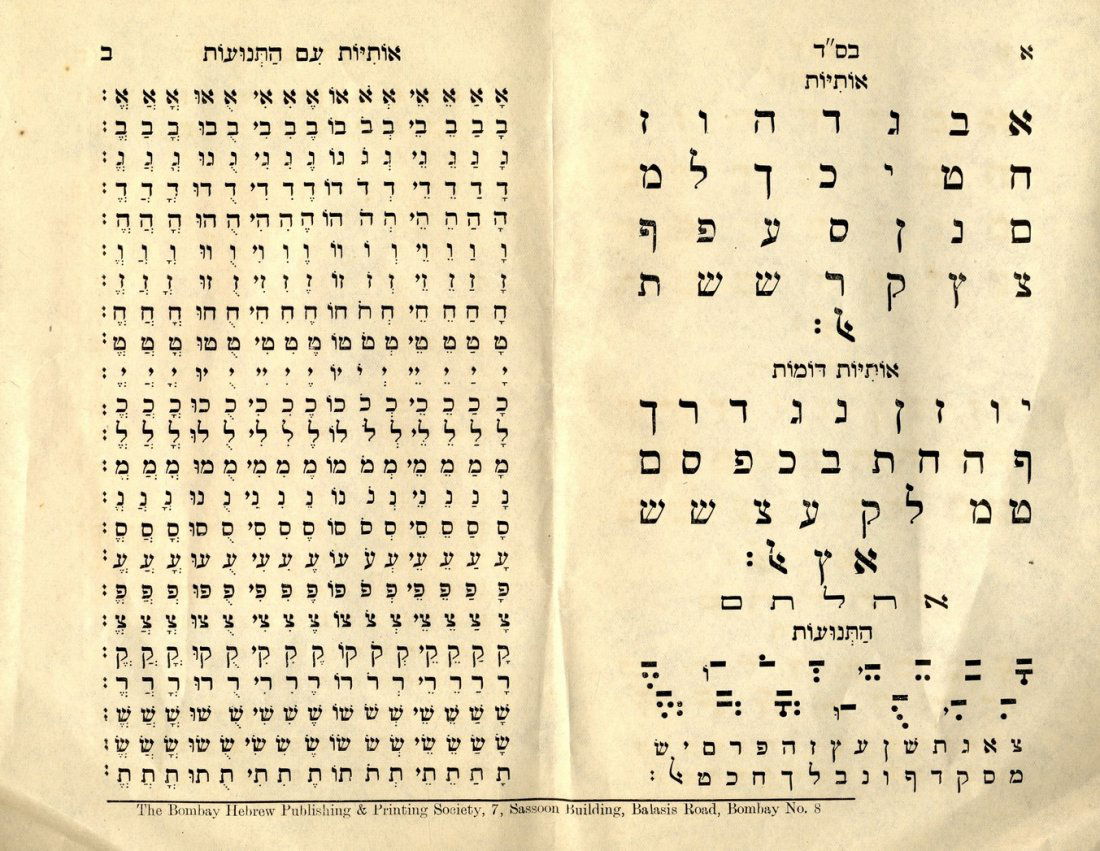 א בס״ד
אוֹתִיּוֹת
א ב ג ד ה ו ז
ח ט י כ ך ל מ
ם נ ן ס ע פ ף
צ ץ ק ר ש ש ת
ﭏ :
אוֹתִיּוֹת דּוֹמוֹת
י ו ז ן נ ג ד ר ך
ף ה ח ת ב כ פ ס ם
ט מ ל ק ע צ ש ש
א ץ ﭏ :
ﬡ ﬣ ﬥ ﬨ ﬦ
הַתְּנוּעוֹת
צ א ג ת ש ן ע ץ ז ה פ ר ם י ש
מ ס ק ד ף ו נ ב ל ך ח כ ט ﭏ :
אוֹתִיּוֹת עִם הַתְּנוּעוֹת ב
אָ אַ אֵ אֵי אְ אֹ אוֹ אֶ אִ אִי אֻ אוּ אֳ אֲ אֱ :
בָ בַ בֵ בֵי בְ בֹ בוֹ בֶ בִ בִי בֻ בוּ בֳ בֲ בֱ :
גָ גַ גֵ גֵי גְ גֹ גוֹ גֶ גִ גִי גֻ גוּ גֳ גֲ גֱ :
דָ דַ דֵ דֵי דְ דֹ דוֹ דֶ דִ דִי דֻ דוּ דֳ דֲ דֱ :
הָ הַ הֵ הֵי הְ הֹ הוֹ הֶ הִ הִי הֻ הוּ הֳ הֲ הֱ :
וָ וַ וֵ וֵי וְ וֹ ווֹ וֶ וִ וִי וֻווּ וֳ וֲ וֱ :
זָ זַ זֵ זֵי זְ זֹ זוֹ זֶ זִ זִי זֻ זוּ זֳ זֲ זֱ :
חָ חַ חֵ חֵי חְ חֹ חוֹ חֶ חִ חִי חֻ חוּ חֳ חֲ חֱ :
טָ טַ טֵ טֵי טְ טֹ טוֹ טֶ טִ טִי טֻ טוּ טֳ טֲ טֱ :
יָ יַ יֵ יֵי יְ יֹ יוֹ יֶ יִ יִי יֻ יוּ יֳ יֲ יֱ :
כָ כַ כֵ כֵי כְ כֹ כוֹ כֶ כִ כִי כֻ כוּ כֳ כֲ כֱ :
לָ לַ לֵ לֵי לְ לֹ לוֹ לֶ לִ לִי לֻ לוּ לֳ לֲ לֱ :
מָ מַ מֵ מֵי מְ מֹ מוֹ מֶ מִ מִי מֻ מוּ מֳ מֲ מֱ :
נָ נַ נֵ נֵי נְ נֹ נוֹ נֶ נִ נִי נֻ נוּ נֳ נֲ נֱ :
סָ סַ סֵ סֵי סְ סֹ סוֹ סֶ סִ סִי סֻ סוּ סֳ סֲ סֱ :
עָ עַ עֵ עֵי עְ עֹ עוֹ עֶ עִ עִי עֻ עוּ עֳ עֲ עֱ :
פָּ פַּ פֵּ פֵּי פְּ פֹּ פּוֹ פֶּ פִּ פִּי פֻּ פּוּ פֳּ פֲּ פֱּ :
צָ צַ צֵ צֵי צְ צֹ צוֹ צֶ צִ צִי צֻ צוּ צֳ צֲ צֱ :
קָ קַ קֵ קֵי קְ קֹ קוֹ קֶ קִ קִי קֻ קוּ קֳ קֲ קֱ :
רָ רַ רֵ רֵי רְ רֹ רוֹ רֶ רִ רִי רֻ רוּ רֳ רֲ רֱ :
שָׁ שַׁ שֵׁ שֵׁי שְׁ שֹׁ שׁוֹ שֶׁ שִׁ שִׁי שֻׁ שׁוּ שֳׁ שֲׁ שֱׁ :
שָׂ שַׂ שֵׂ שֵׂי שְׂ שֹׂ שׂוֹ שֶׂ שִׂ שִׂי שֻׂ שׂוּ שֳׂ שֲׂ שֱׂ :
תָ תַ תֵ תֵי תְ תֹ תוֹ תֶ תִ תִי תֻ תוּ תֳ תֲ תֱ :
The Bombay Hebrew Publishing & Printing Society, 7, Sassoon Building, Balasis Road, Bombay No. 8